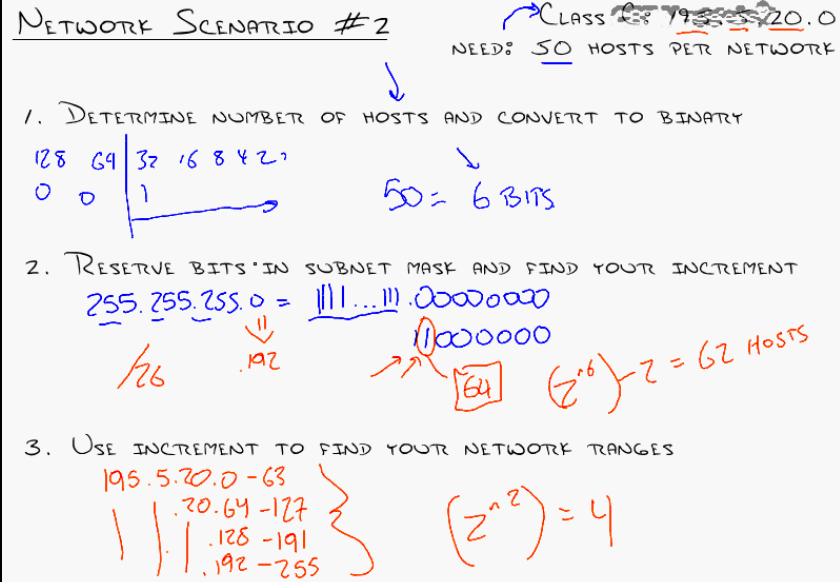 NETWORK SCENARIO #2
CLASS C: 195.5.20.0
NEED: 50 HOSTS PER NETWORK
1. DETERMINE NUMBER OF HOSTS AND CONVERT TO BINARY
128 64 32 16 8 4 2 1
0 0 1
50 = 6 BITS
2. RESERVE BITS IN SUBNET MASK AND FIND YOUR INCREMENT
255.255.255.0 = 1111...111.00000000
11000000
/26
.192
64
(2^6)-2 = 62 HOSTS
3. USE INCREMENT TO FIND YOUR NETWORK RANGES
195.5.20.0-63
.20.64-127
.128-191
.192-255
(2^2) = 4